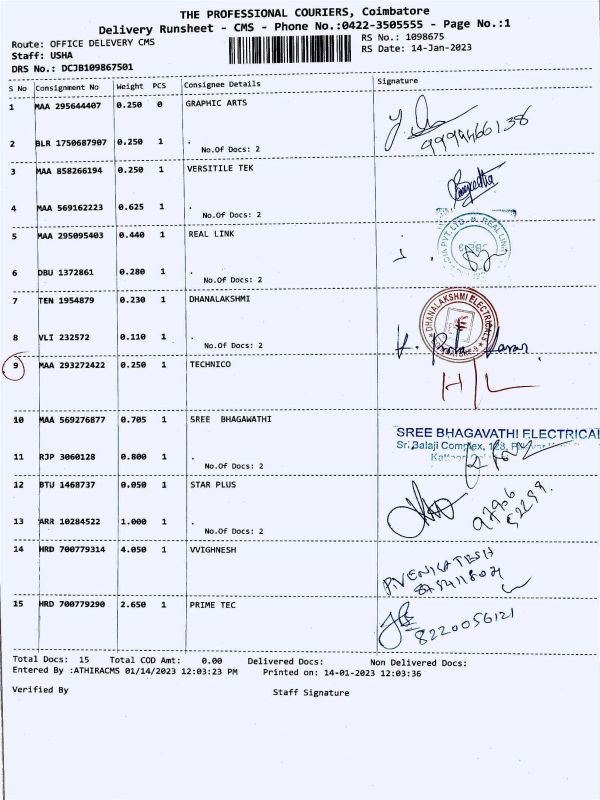 THE PROFESSIONAL COURIERS, Coimbatore
Delivery Runsheet - CMS - Phone No.:0422-3505555 - Page No.:1
Route: OFFICE DELEVERY CMS
RS No.: 1098675
Staff: USHA
RS Date: 14-Jan-2023
DRS No.: DCJB109867501
S No Consignment No Weight PCS Consignee Details Signature
1 MAA 295644407 0.250 0 GRAPHIC ARTS
9999466138
2 BLR 1750687907 0.250 1 .
No.Of Docs: 2
3 MAA 858266194 0.250 1 VERSITILE TEK
4 MAA 569162223 0.625 1 .
No.Of Docs: 2
5 MAA 295095403 0.440 1 REAL LINK
PVT. LTD. REAL LINK
6 DBU 1372861 0.280 1 .
No.Of Docs: 2
7 TEN 1954879 0.230 1 DHANALAKSHMI
DHANALAKSHMI ELECTRICALS
8 VLI 232572 0.110 1 .
No.Of Docs: 2
9 MAA 293272422 0.250 1 TECHNICO
10 MAA 569276877 0.705 1 SREE BHAGAWATHI
SREE BHAGAVATHI ELECTRICAL
Sri Balaji Complex, 128,
11 RJP 3060128 0.800 1 .
No.Of Docs: 2
12 BTU 1468737 0.050 1 STAR PLUS
13 ARR 10284522 1.000 1 .
No.Of Docs: 2
14 HRD 700779314 4.050 1 VVIGHNESH
P.VENKATESH
15 HRD 700779290 2.650 1 PRIME TEC
8220056121
Total Docs: 15 Total COD Amt: 0.00 Delivered Docs: Non Delivered Docs:
Entered By :ATHIRACMS 01/14/2023 12:03:23 PM Printed on: 14-01-2023 12:03:36
Verified By Staff Signature